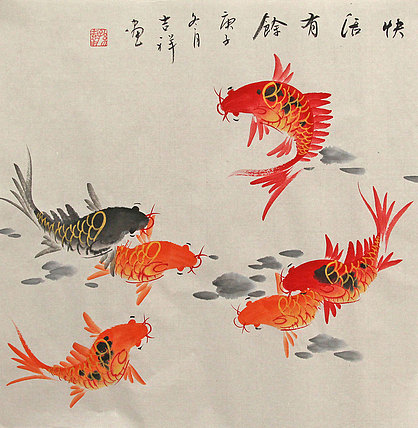 快活有餘
庚子
冬月
吉祥
畫